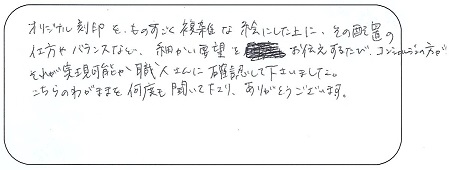 オリジナル刻印を、ものすごく複雑な絵にした上に、その配置の
仕方やバランスなど、細かい要望をお伝えするたび、コンシェルジュの方が
それが実現可能か職人さんに確認して下さいました。
こちらのわがままを何度も聞いて下さり、ありがとうございます。